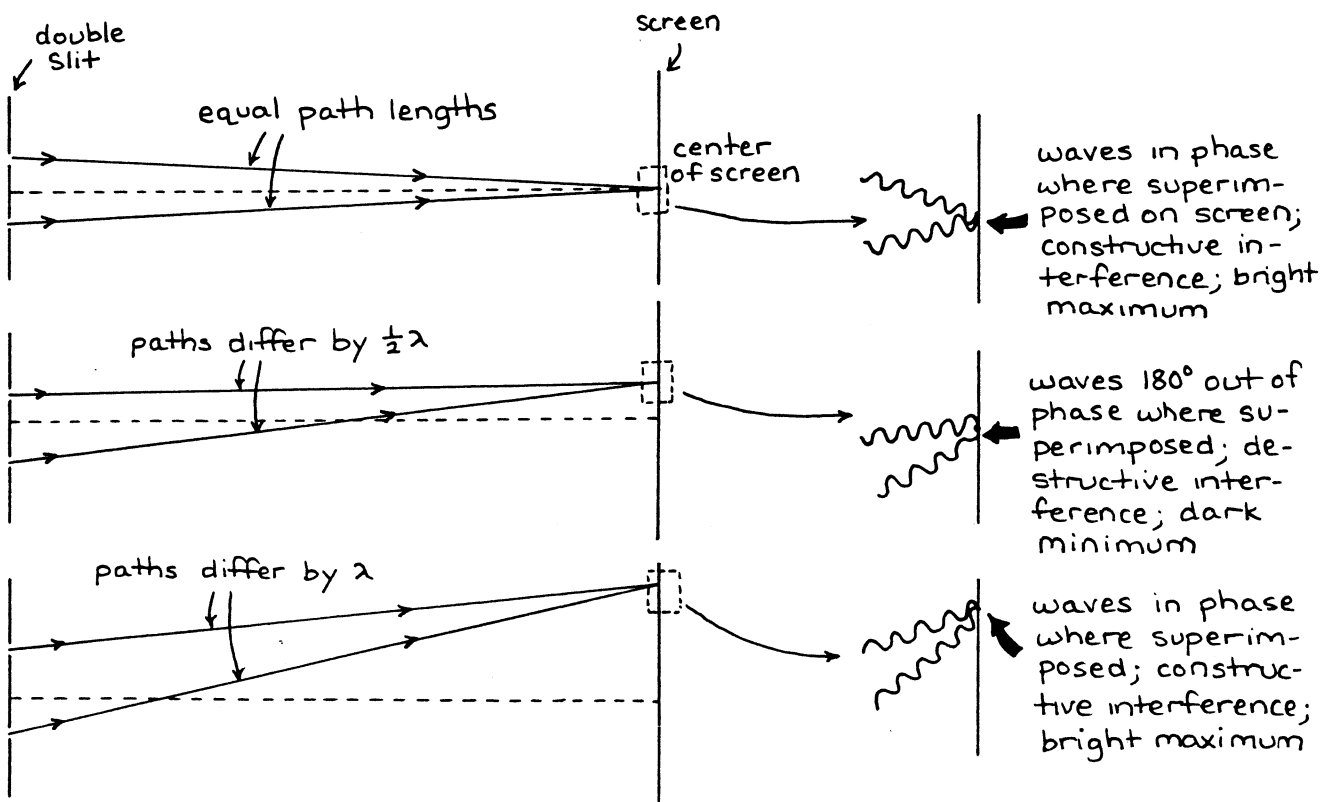 double
slit
screen
equal path lengths
center
of screen
waves in phase
where superim-
posed on screen;
constructive in-
terference; bright
maximum
paths differ by ½λ
waves 180° out of
phase where su-
perimposed; de-
structive inter-
ference; dark
minimum
paths differ by λ
waves in phase
where superim-
posed; construc-
tive interference;
bright maximum